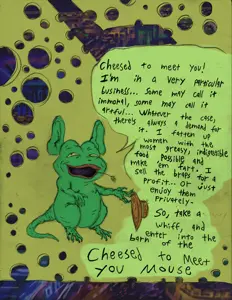 Cheesed to meet you!
I'm in a very particular
business... Some may call it
immoral, some may call it
artful... Whatever the case,
there's always a demand for
it. I fatten up
women with the
most greasy, indigestible
food possible and
make 'em fart. I
sell the braps for a
profit... Or just
enjoy them
privately-
So, take a
whiff, and
enter into the
barn of the
Cheesed to Meet
You Mouse